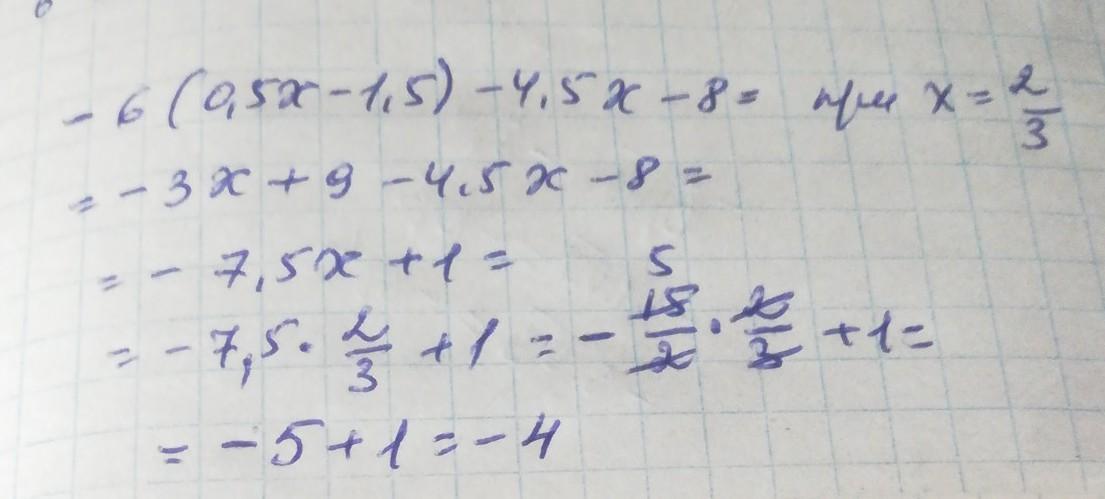 - 6 (0,5x - 1,5) - 4,5x - 8 = при x = 2/3
= - 3x + 9 - 4,5x - 8 =
= - 7,5x + 1 =
= - 7,5 · 2/3 + 1 = - 15/2 · 2/3 + 1 =
5
= - 5 + 1 = - 4